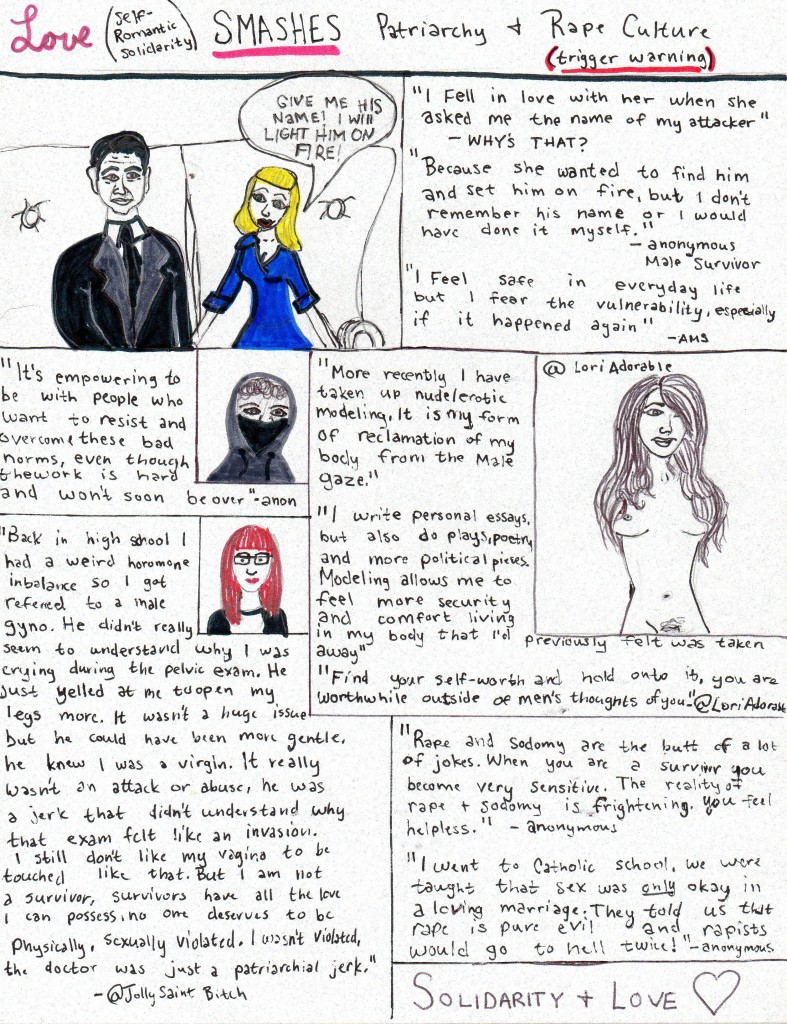 Love (Self-
Romantic
Solidarity) SMASHES Patriarchy + Rape Culture
(trigger warning)
GIVE ME HIS
NAME! I WILL
LIGHT HIM ON
FIRE!
"I Fell in love with her when she
asked me the name of my attacker"
- WHY'S THAT?
"Because she wanted to find him
and set him on fire, but I don't
remember his name or I would
have done it myself."
- anonymous
Male Survivor
"I Feel safe in everyday life
but I fear the vulnerability, especially
if it happened again"
- AMS
"It's empowering to
be with people who
want to resist and
overcome these bad
norms, even though
thework is hard
and won't soon be over" -anon
"More recently I have
taken up nude/erotic
modeling. It is my form
of reclamation of my
body from the Male
gaze."
@ Lori Adorable
"I write personal essays,
but also do plays, poetry
and more political pieces.
Modeling allows me to
feel more security
and comfort living
in my body that I'd previously felt was taken
away"
"Find your self-worth and hold onto it, you are
worthwhile outside of men's thoughts of you." @LoriAdorable
"Back in high school I
had a weird horomone
inbalance so I got
referred to a male
gyno. He didn't really
seem to understand why I was
crying during the pelvic exam. He
just yelled at me to open my
legs more. It wasn't a huge issue
but he could have been more gentle,
he knew I was a virgin. It really
wasn't an attack or abuse, he was
a jerk that didn't understand why
that exam felt like an invasion.
I still don't like my vagina to be
touched like that. But I am not
a survivor, survivors have all the love
I can possess, no one deserves to be
physically, sexually violated. I wasn't violated,
the doctor was just a patriarchial jerk."
- @Jolly Saint Bitch
"Rape and Sodomy are the butt of a lot
of jokes. When you are a survivor you
become very sensitive. The reality of
rape + sodomy is frightening. you feel
helpless." - anonymous
"I went to Catholic school, we were
taught that sex was only okay in
a loving marriage. They told us that
rape is pure evil and rapists
would go to hell twice!" - anonymous
SOLIDARITY + LOVE